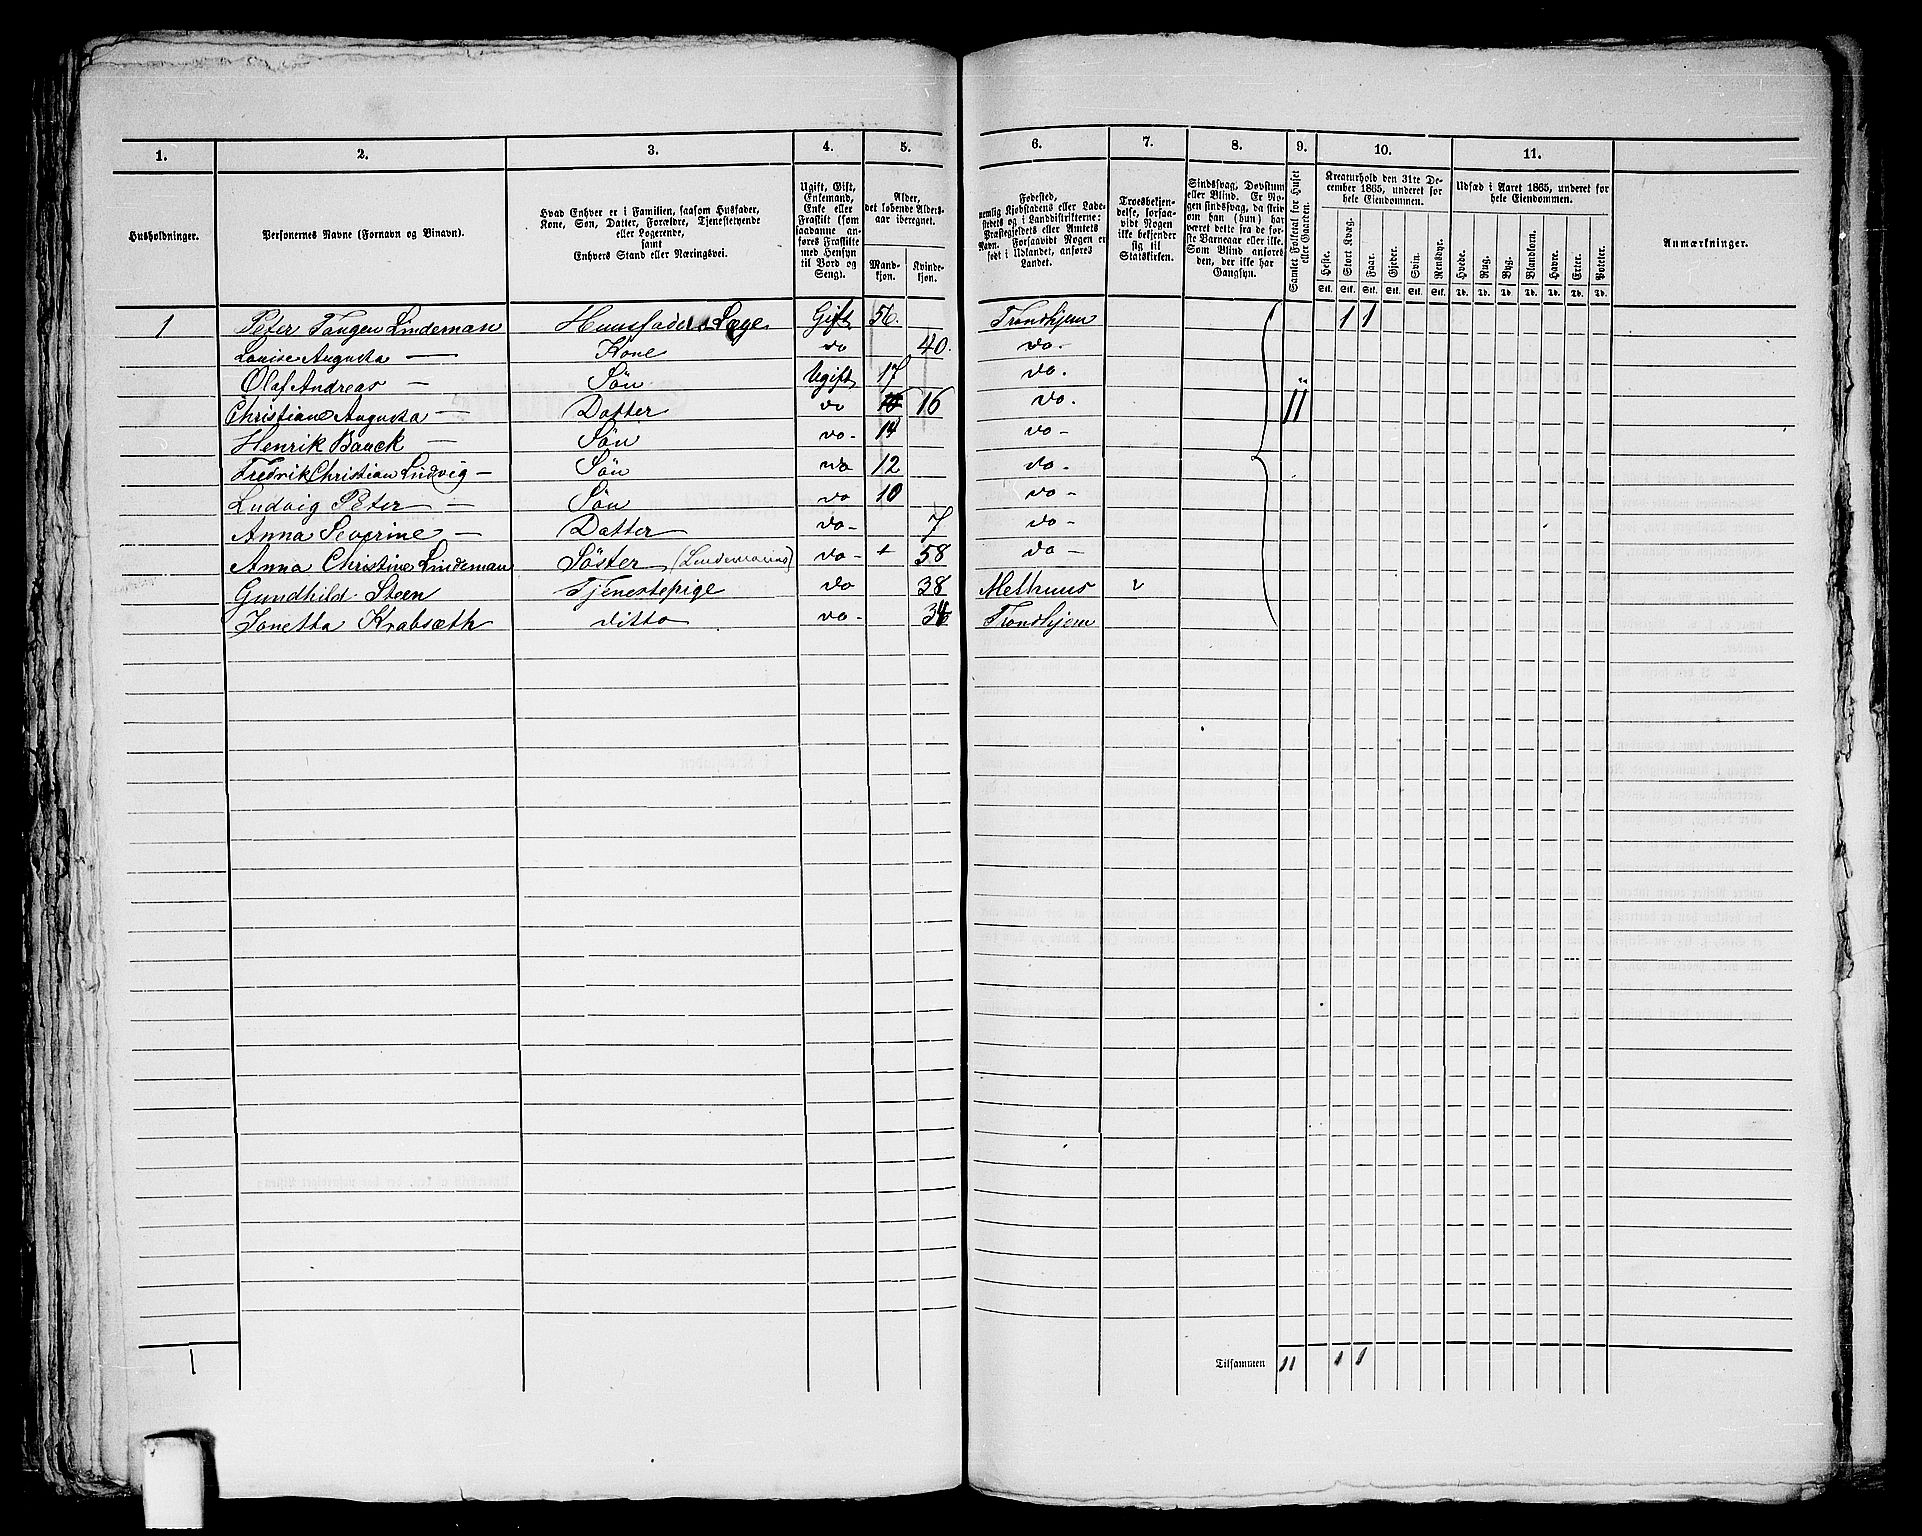 1. 2. 3. 4. 5. 6. 7. 8. 9. 10. 11.
Husholdninger.
Personernes Navne (Fornavn og Binavn).
Hvad Enhver er i Familien, saasom Husfader,
Kone, Søn, Datter, Forældre, Tjenestetyende
eller Logerende,
samt
Enhvers Stand eller Næringsvei.
Ugift, Gift,
Enkemand,
Enke eller
Fraskilt (som
saadanne an-
føres Fraskilte
med Hensyn
til Bord og
Seng).
Alder,
det løbende Alders-
aar iberegnet.
Mand-
kjøn.
Kvinde-
kjøn.
Fødested,
nemlig Kjøbstadens eller Lade-
stedets og i Landdistrikterne:
Præstegjeldets eller Amtets
Navn. Forsaavidt Nogen er
født i Udlandet, anføres
Landet.
Troesbekjen-
delse, forsaa-
vidt Nogen
ikke bekjender
sig til
Statskirken.
Sindssvag, Døvstum
eller Blind. Er No-
gen sindssvag, da skriv
om han (hun) har
været dette fra de før-
ste Barneaar eller ikke.
Som Blind anføres
den, der ikke har
Gangsyn.
Samlet Folketal for Huset
eller Gaarden.
Kreaturhold den 31te De-
cember 1865, underet for
hele Eiendommen.
Heste. Stort Kvæg. Faar. Gjeder. Svin. Rensdyr.
Stk. Stk. Stk. Stk. Stk. Stk.
Udsæd i Aaret 1865, underet for
hele Eiendommen.
Hvede. Rug. Byg. Blandkorn. Havre. Erter. Poteter.
Td. Td. Td. Td. Td. Td. Td.
Anmærkninger.
1 Peter Tangen Lindeman Huusfader Læge Gift 56. Trondhjem 1 1
Louise Augusta — Kone do 40. do-
Olaf Andreas — Søn Ugift 17 do.
Christiane Augusta — Datter do 16 do. 11
Henrik Bauck — Søn do- 14 do-
Fredrik Christian Ludvig — Søn do 12 do-
Ludvig Peter — Søn do 10 do-
Anna Severine — Datter do- 7 do-
Anna Christine Lindeman Søster (Lindemanns) do- 58 do-
Gundhild Steen Tjenestepige do 38 Melhuus
Jonetta Krabsæth ditto do- Trondhjem
1 Tilsammen 11 1 1